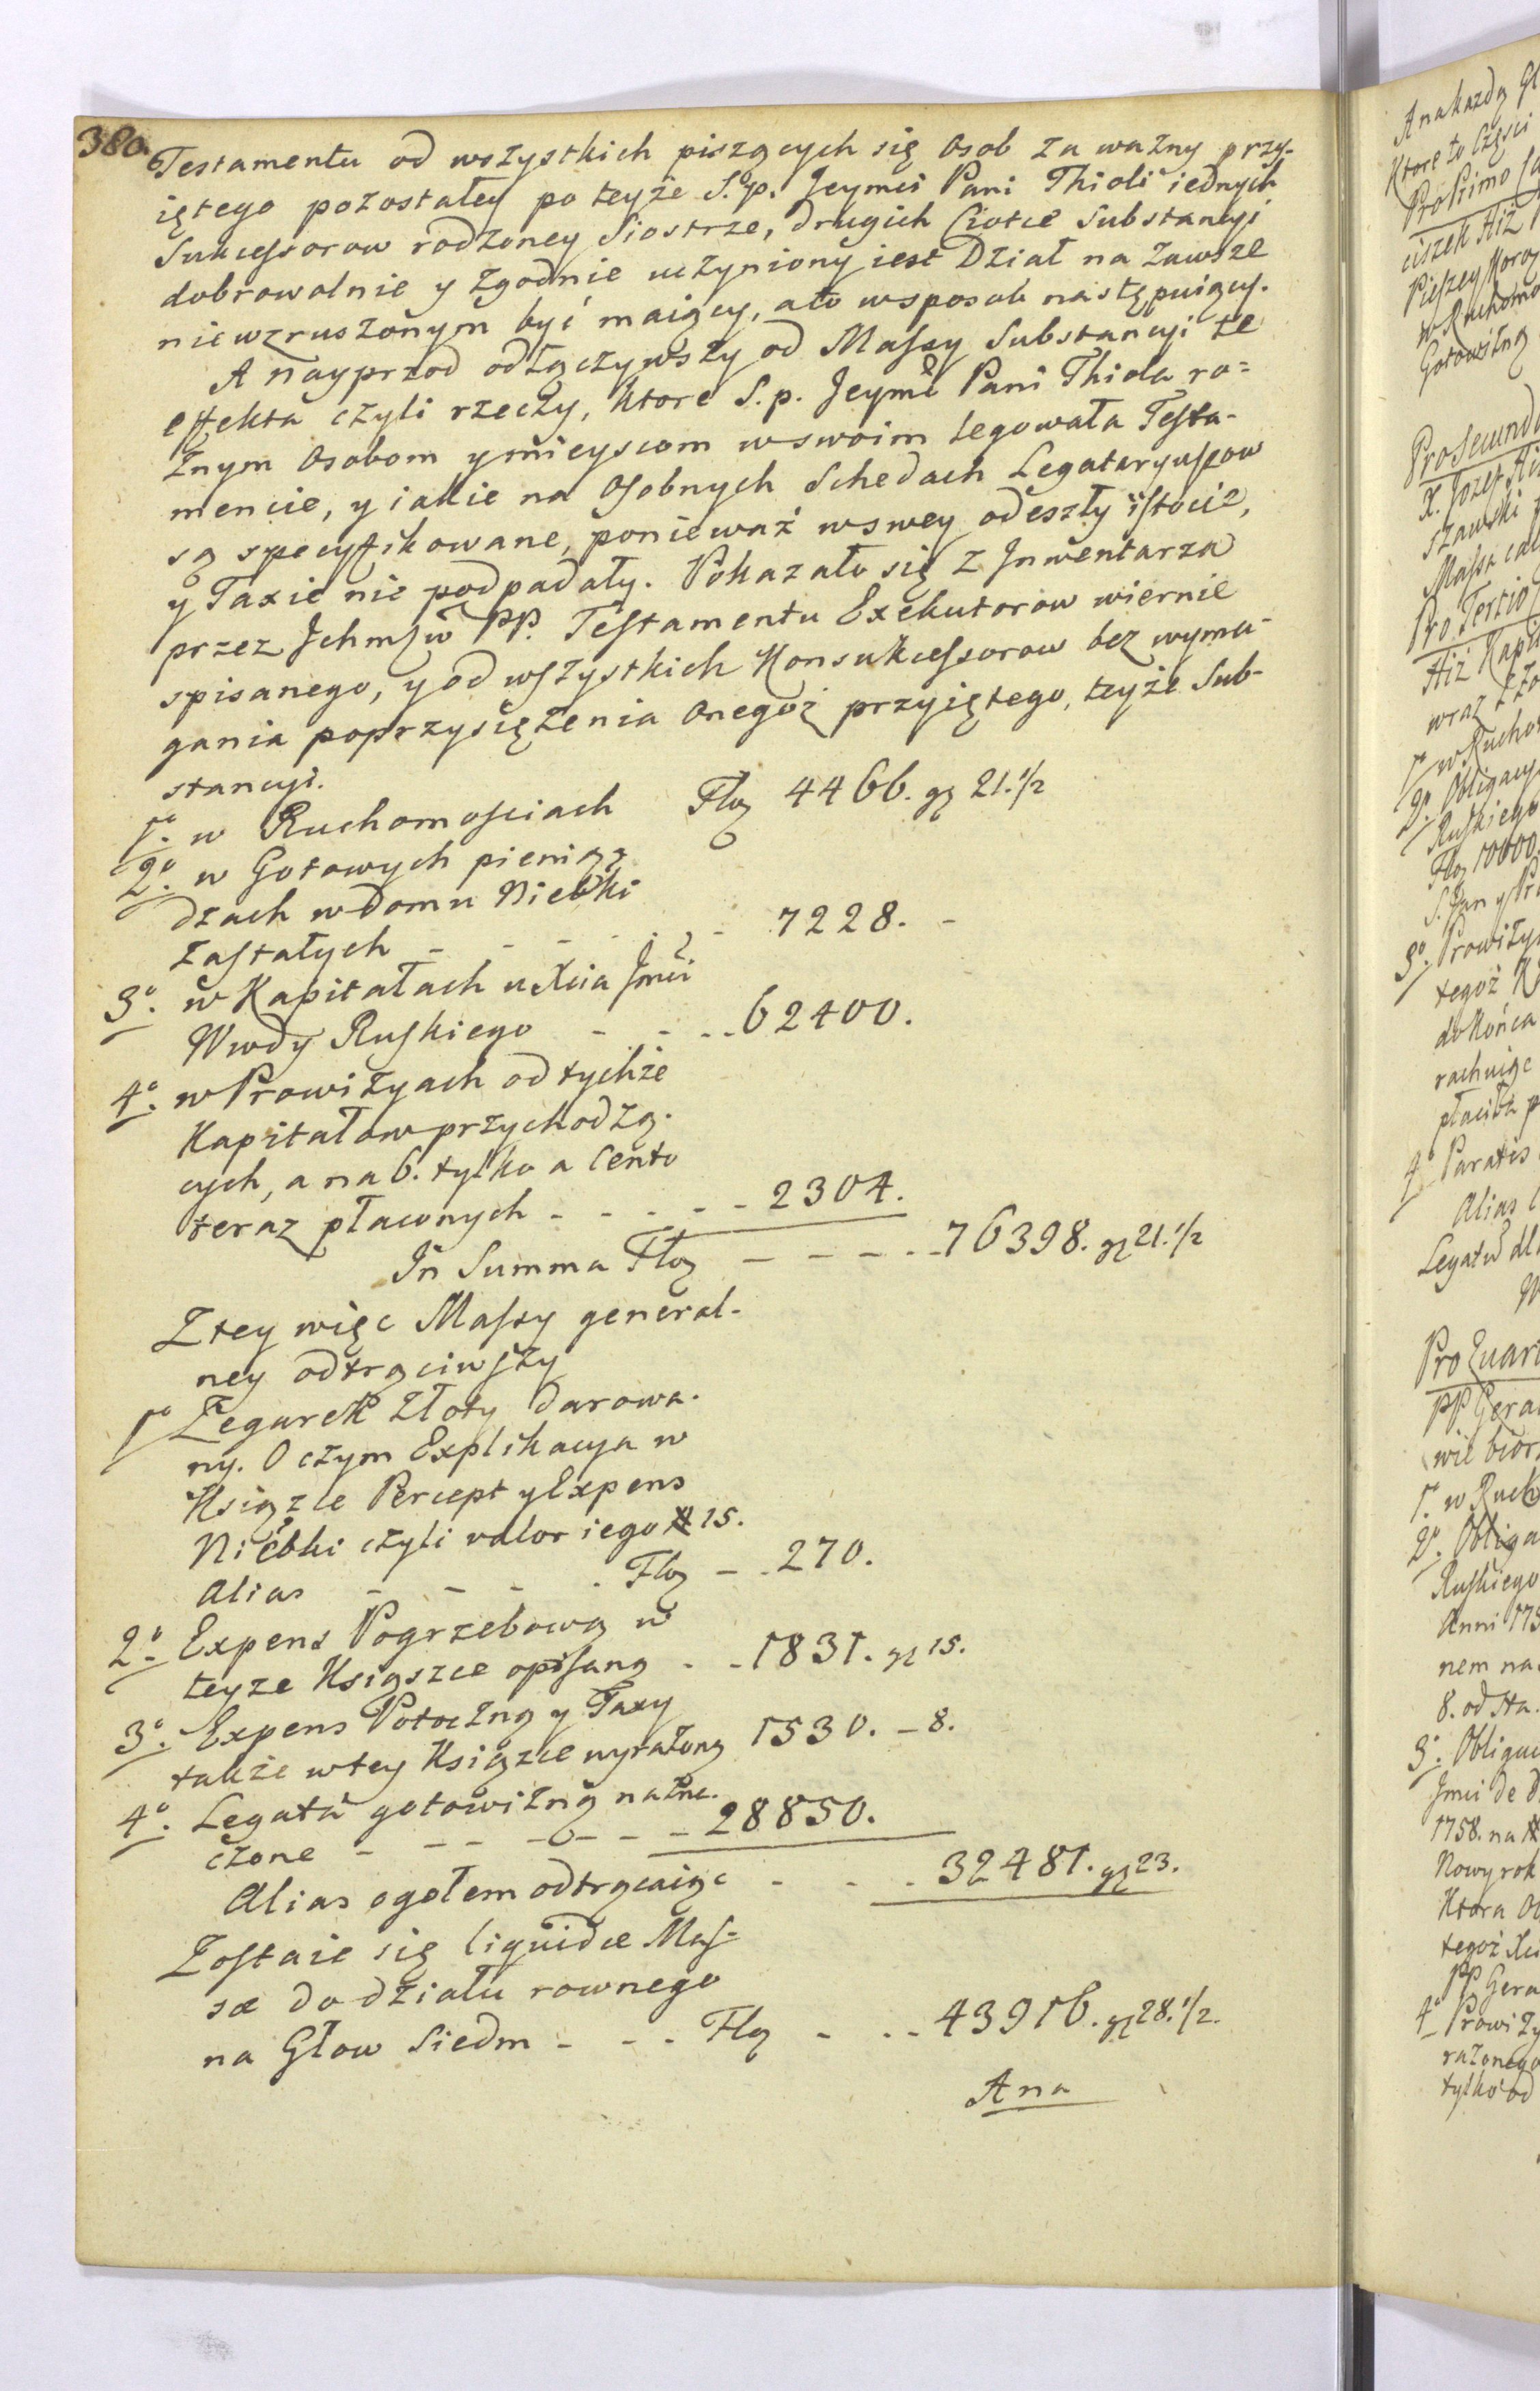 380.
Testamentu od wszystkich piszących się Osob za ważny przy-
iętego pozostałey po teyże S. p. Jeymci Pani Thioli iednych
Sukcessorow rodzoney Siostrze, drugich Ciotce Substancyi
dobrowolnie y zgodnie uczyniony iest Dział na zawsze
niewzruszonym być maiący, a to wsposob następuiący.
A nayprzod odłączywszy od Massy Substancyi te
effekta czyli rzeczy, ktore S. p. Jeymć Pani Thiola ro=
żnym Osobom y mieyscom wswoim legowała Testa-
mencie, y iakie na Osobnych Schedach Legataryuszow
są specyfikowane, ponieważ wswey odeszły istocie,
y Taxie nie podpadały. Pokazało się z Inwentarza
przez Ichmsw PP. Testamentu Exekutorow wiernie
spisanego, y od wszystkich Konsukcessorow bez wyma-
gania poprzysiężenia onegoż przyiętego, teyże Sub-
stancyi.
1o. w Ruchomosciach Flog 4466. gr 21.1/2
2o. w Gotowych pienią-
dzach w Domu Niebki
zastałych - - - - - - 7228. -
3o. w Kapitałach u Xcia Jmci
Wwdy Ruskiego - - - - 62400.
4o. w Prowizyach od tychże
Kapitałow przychodzą-
cych, a na 6. tylko a Cento
teraz płaconych - - - - - 2304.
In Summa Fłog - - - - - 76398. gr 21.1/2
Z tey więc Massy general-
ney odtrąciwszy
1o Zegarek złoty darowa-
ny. O czym Explikacya w
Xiążce Percept y Expens
Niebki czyli valor iego # 15.
Alias - - - - Flog - - 270.
2o. Expens Pogrzebową w
teyze Ksiąszce opisaną - - 1831. gr 15.
3o. Expens Potoczną y Taxy
także w tey Ksiązce wyrażoną 1530. - 8.
4o. Legata gotowizną nazna-
czone - - - - - - - 28850.
Alias ogołem odtrącaiąc - - - 32481. gr 23.
Zostaie się liquidæ Mas-
sæ do działu rownego
na Głow Siedm - - - Flog - - - 43916. gr 28.1/2.
A na
A na kazdą
Ktore to Części
Pro Primo
ciszek Hiż
w Ruchomo
Gotowizną
Pro Secundo
X. Jozef Hiż
Pro Tertio
Hiż Kapit
wraz z
1o w Rucho
2o. Obligacy
Ruskiego
Flog 10000.
S. Jan y
3o. Prowizy
tegoż
do Końca
rachuiąc
płacić
4o Paratis
Alias
Legatw dl
Pro Quart
PP. Gera
1o. w Ruch
2o. Obliga
Ruskiego
Anni 175
nem na
8. od sta.
3o. Obliga
Jmci de
1758. na #
Nowy rok
Ktora
tegoż
PP Gera
4o Prowizy
rażonego
tylko od